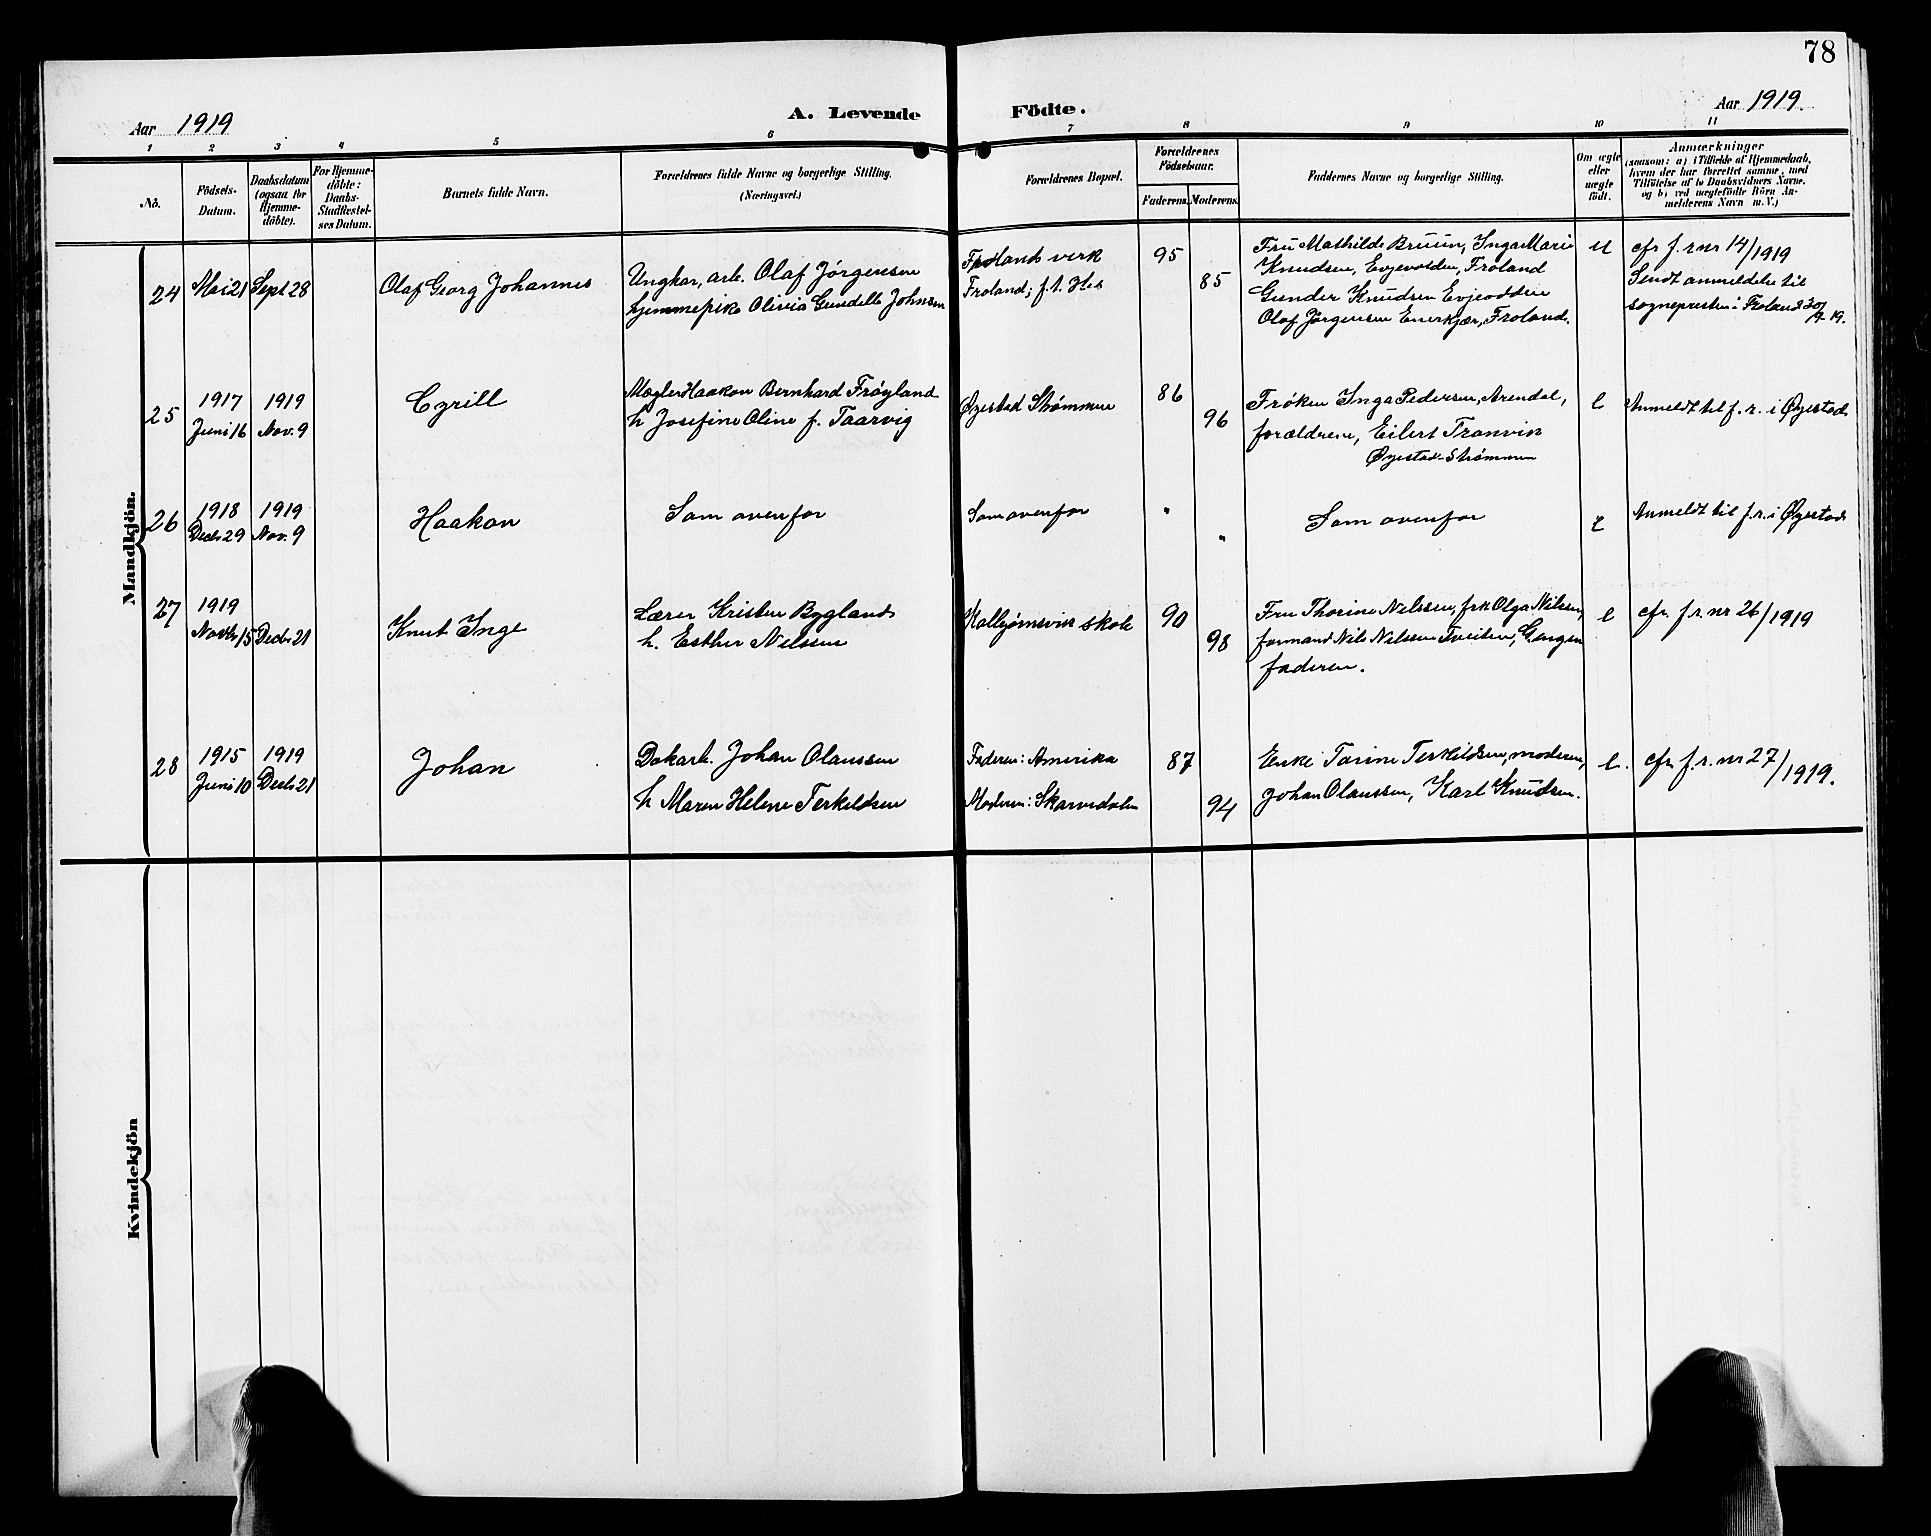 78
Aar 1919
A. Levende
Födte.
Aar 1919.
1 2 3 4 5 6 7 8 9 10 11
No.
Födsels-
Datum.
Daabsdatum
(ogsaa for
Hjemme-
döbte).
For Hjemme-
döbte:
Daabs-
Stadfæstel-
ses Datum.
Barnets fulde Navn.
Forældrenes fulde Navne og borgerlige Stilling.
(Næringsvei.)
Forældrenes Bopæl.
Forældrenes
Födselsaar.
Faderens. Moderens.
Faddernes Navne og borgerlige Stilling.
Om ægte
eller
uægte
födt.
Anmærkninger
(saasom: a) i Tilfælde af Hjemmedaab,
hvem der har forrettet samme, med
Tilföielse af to Daabsvidners Navne.
og b) ved uægtefödte Börn An-
melderens Navn m. V.)
Mandkjön.
24
Mai 21
Sept 28
Olaf Georg Johannes
Ungkar, arb. Olaf Jørgensen
hjemmepike Olivia Gundelle Johnsen
Frolands verk
Froland; f. t. His
95
85
Fru Mathilde Bruun, Inga Marie
Knudsen, Froland
Gunder Knudsen
Olaf Jørgensen Enerkjær, Froland.
U
cfr f. r nr 14/1919
Sendt anmeldelse til
sognepresten i Froland 30/9 19.
25
1917
Juni 16
1919
Nov. 9
Cyrill
Mægler Haakon Bernhard Frøyland
h Josefine Oline f. Taarvig
Øyestad Strømmen
86
96
Frøken Inga Pedersen, Arendal,
forældrene, Eilert Tranvik
Øyestad-Strømmen
E
Anmeldt til f. r. i Øyestad
26
1918
Decbr 29
1919
Nov. 9
Haakon
Som ovenfor
Som ovenfor
"
"
Som ovenfor
E
Anmeldt til f. r. i Øyestad
27
1919
Novbr 15
Decbr 21
Knut Inge
Lærer Kristen Bygland
h. Esther Nilsen
Kolbjørnsvik skole
90
98
Fru Thorine Nilssen, frk Olga Nilsen,
formand Nils Nilssen Tveiten,
faderen.
E
cfr. f. r. nr 26/1919
28
1915
Juni 10
1919
Decbr 21
Johan
Dokarb. Johan Olaussen
h Maren Helene Terkildsen
Faderen: Amerika
Moderen: Skarvedalen
87
94
Enke Tarine Terkildsen, moderen,
Johan Olaussen, Karl Knudsen.
E.
cfr. f. r. nr 27/1919.
Kvindekjön